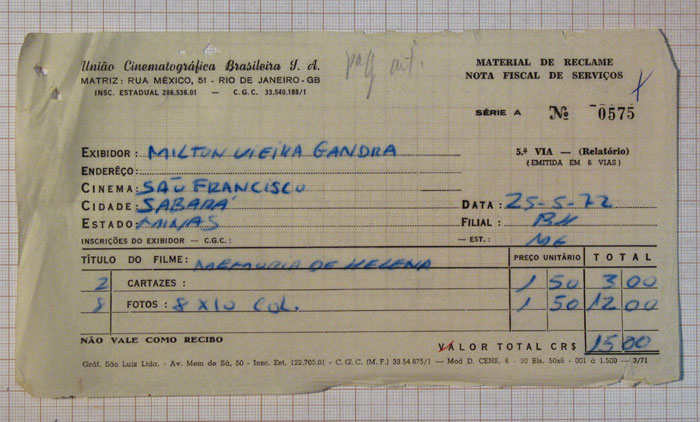 União Cinematográfica Brasileira S. A.
MATRIZ: RUA MÉXICO, 51 - RIO DE JANEIRO-GB
INSC. ESTADUAL 286.536.01 — C.G.C. 33.540.188/1
pag ant.
MATERIAL DE RECLAME
NOTA FISCAL DE SERVIÇOS
SÉRIE A Nº 0575
5.ª VIA — (Relatório)
(EMITIDA EM 6 VIAS)
EXIBIDOR: MILTON VIEIRA GANDRA
ENDERÊÇO:
CINEMA: SÃO FRANCISCO
CIDADE: SABARÁ DATA: 25-5-72
ESTADO: MINAS FILIAL: BH
INSCRIÇÕES DO EXIBIDOR — C.G.C.: — EST.: MG
TÍTULO DO FILME: MEMORIA DE HELENA PREÇO UNITÁRIO TOTAL
2 CARTAZES: 1 50 3 00
8 FOTOS: 8 X 10 COL. 1 50 12 00
NÃO VALE COMO RECIBO VALOR TOTAL CR$ 15 00
Gráf. São Luiz Ltda. - Av. Mem de Sá, 50 - Insc. Est. 122.705.01 - C. G. C. (M. F.) 33 54.875/1 — Mod D. CENS, 6 - 30 Bls. 50x6 - 001 à 1.500 — 3/71